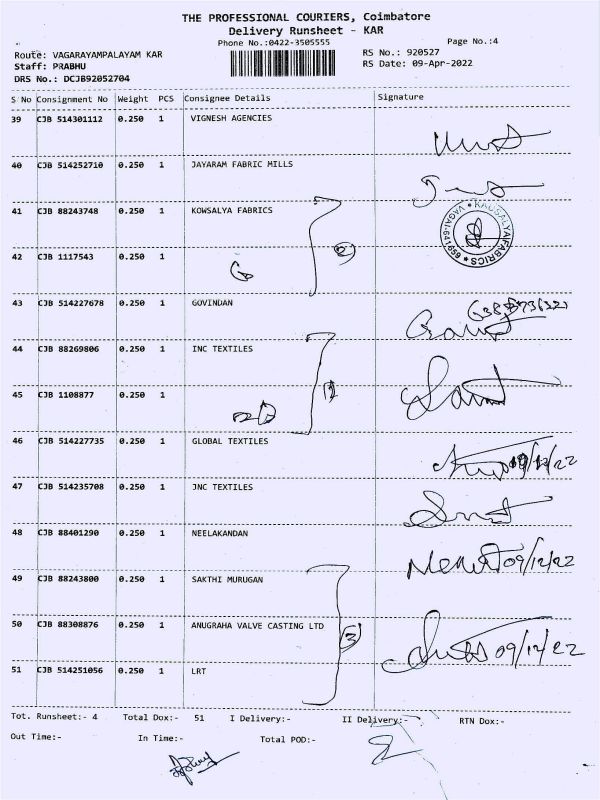 THE PROFESSIONAL COURIERS, Coimbatore
Delivery Runsheet - KAR
Phone No.:0422-3505555
Page No.:4
Route: VAGARAYAMPALAYAM KAR
RS No.: 920527
Staff: PRABHU
RS Date: 09-Apr-2022
DRS No.: DCJB92052704
S No Consignment No Weight PCS Consignee Details Signature
39 CJB 514301112 0.250 1 VIGNESH AGENCIES
40 CJB 514252710 0.250 1 JAYARAM FABRIC MILLS
41 CJB 88243748 0.250 1 KOWSALYA FABRICS
KAUSALYAA FABRICS * VAGAI-641659 *
42 CJB 1117543 0.250 1
2
43 CJB 514227678 0.250 1 GOVINDAN
44 CJB 88269806 0.250 1 INC TEXTILES
45 CJB 1108877 0.250 1
1
46 CJB 514227735 0.250 1 GLOBAL TEXTILES
09/12/22
47 CJB 514235708 0.250 1 JNC TEXTILES
48 CJB 88401290 0.250 1 NEELAKANDAN
09/12/22
49 CJB 88243800 0.250 1 SAKTHI MURUGAN
50 CJB 88308876 0.250 1 ANUGRAHA VALVE CASTING LTD
3
09/12/22
51 CJB 514251056 0.250 1 LRT
Tot. Runsheet:- 4 Total Dox:- 51 I Delivery:- II Delivery:- RTN Dox:-
Out Time:- In Time:- Total POD:-